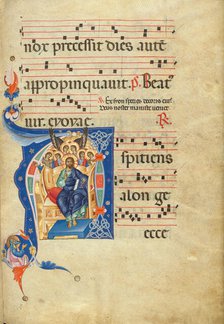 nox precessit dies autē
appropinquavit. P. Beat⁹
vir. evovae. R.
spitiens
a lon ge
ecce